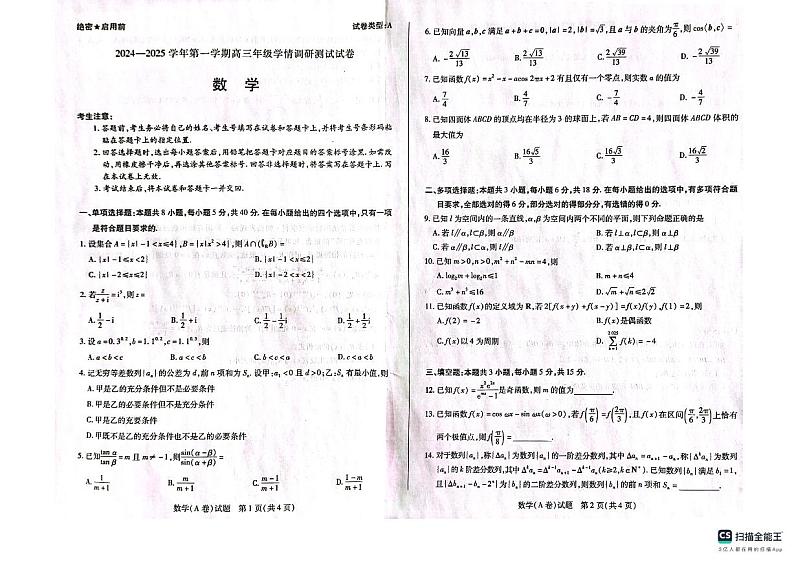 绝密★启用前
试卷类型:A
2024—2025 学年第一学期高三年级学情调研测试试卷
数 学
考生注意:
1. 答题前,考生务必将自己的姓名、考生号填写在试卷和答题卡上,并将考生号条形码粘贴在答题卡上的指定位置.
2. 回答选择题时,选出每小题答案后,用铅笔把答题卡对应题目的答案标号涂黑.如需改动,用橡皮擦干净后,再选涂其他答案标号.回答非选择题时,将答案写在答题卡上.写在本试卷上无效.
3. 考试结束后,将本试卷和答题卡一并交回.
一、单项选择题:本题共 8 小题,每小题 5 分,共 40 分.在每小题给出的四个选项中,只有一项是符合题目要求的.
1. 设集合 A={x|-1<x≤4},B={x|x²>4},则 A∩(∁ᴿB)=
A. {x|-1<x<2}
B. {x|-1<x≤2}
C. {x|-2≤x≤2}
D. {x|-2<x<2}
2. 若 z/(z+i)=i³,则 z=
A. 1/2-i
B. 1/2+i
C. 1/2-i/2
D. 1/2+i/2
3. 设 a=0.3^0.2,b=1.1^0.2,c=1.1^0.3,则
A. a<b<c
B. a<c<b
C. b<c<a
D. c<a<b
4. 记无穷等差数列{aₙ}的公差为 d,前 n 项和为 Sₙ. 设甲:a₁<0 且 d>0;乙:Sₙ 有最小值,则
A. 甲是乙的充分条件但不是必要条件
B. 甲是乙的必要条件但不是充分条件
C. 甲是乙的充要条件
D. 甲既不是乙的充分条件也不是乙的必要条件
5. 已知 tan α/tan β=m 且 m≠-1,则 sin(α-β)/sin(α+β)=
A. 1/(m+1)
B. m/(m+1)
C. (m-1)/(m+1)
D. (1-m)/(m+1)
数学(A 卷)试题 第 1 页(共 4 页)
6. 已知向量 a,b,c 满足 a+b+c=0,|a|=2,|b|=√3,且 a 与 b 的夹角为 π/6,则 cos⟨b,c⟩=
A. -2√13/13
B. 2√13/13
C. -4√13/13
D. -5√13/26
7. 已知函数 f(x)=x²-x-acos 2πx+2 有且仅有一个零点,则实数 a 的值为
A. 7/4
B. 4/7
C. -7/4
D. -4/7
8. 已知四面体 ABCD 的顶点均在半径为 3 的球面上,若 AB=CD=4,则四面体 ABCD 体积的最大值为
A. 16/3
B. 16√2/3
C. 16√3/3
D. 16√5/3
二、多项选择题:本题共 3 小题,每小题 6 分,共 18 分.在每小题给出的选项中,有多项符合题目要求,全部选对的得 6 分,部分选对的得部分分,有选错的得 0 分.
9. 已知 l 为空间内的一条直线,α,β 为空间内两个不同的平面,则下列命题正确的是
A. 若 l∥α,l⊂β,则 α∥β
B. 若 l⊥α,l⊂β,则 α⊥β
C. 若 α∥β,l⊂α,则 l∥β
D. 若 α⊥β,l⊂α,则 l⊥β
10. 已知 m>0,n>0,m²+n²-mn=4,则
A. log₂m+log₂n≤1
B. m+n≤4
C. m³+n³≤16
D. √m+√n≤2√2
11. 已知函数 f(x)的定义域为 R,若 2[f(x+y)+f(x-y)]=f(x)f(y),f(1)=2,则
A. f(2)=-2
B. f(x)是偶函数
C. f(x)以 4 为周期
D. ∑f(k)=-4
三、填空题:本题共 3 小题,每小题 5 分,共 15 分.
12. 已知 f(x)=x³eˣ/(e^mx-1) 是奇函数,则 m 的值为________.
13. 已知函数 f(x)=cos ωx-sin ωx(ω>0),若 f(π/6)=f(2π/3),且 f(x)在区间(π/6,2π/3)上恰有两个极值点,则 f(π/8)=________.
14. 对于数列{aₙ},称{Δaₙ}为数列{aₙ}的一阶差分数列,其中 Δaₙ=aₙ₊₁-aₙ,称{Δᵏaₙ}为数列{aₙ}的 k 阶差分数列,其中 Δᵏaₙ=Δᵏ⁻¹aₙ₊₁-Δᵏ⁻¹aₙ(k≥2,k∈N*). 已知数列{bₙ}满足 b₁=1,且{Δbₙ₊₁-bₙ-2ⁿ}为{bₙ}的二阶差分数列,则数列{bₙ}的前 n 项和 Sₙ=________.
数学(A 卷)试题 第 2 页(共 4 页)
CS 扫描全能王
3亿人都在用的扫描App